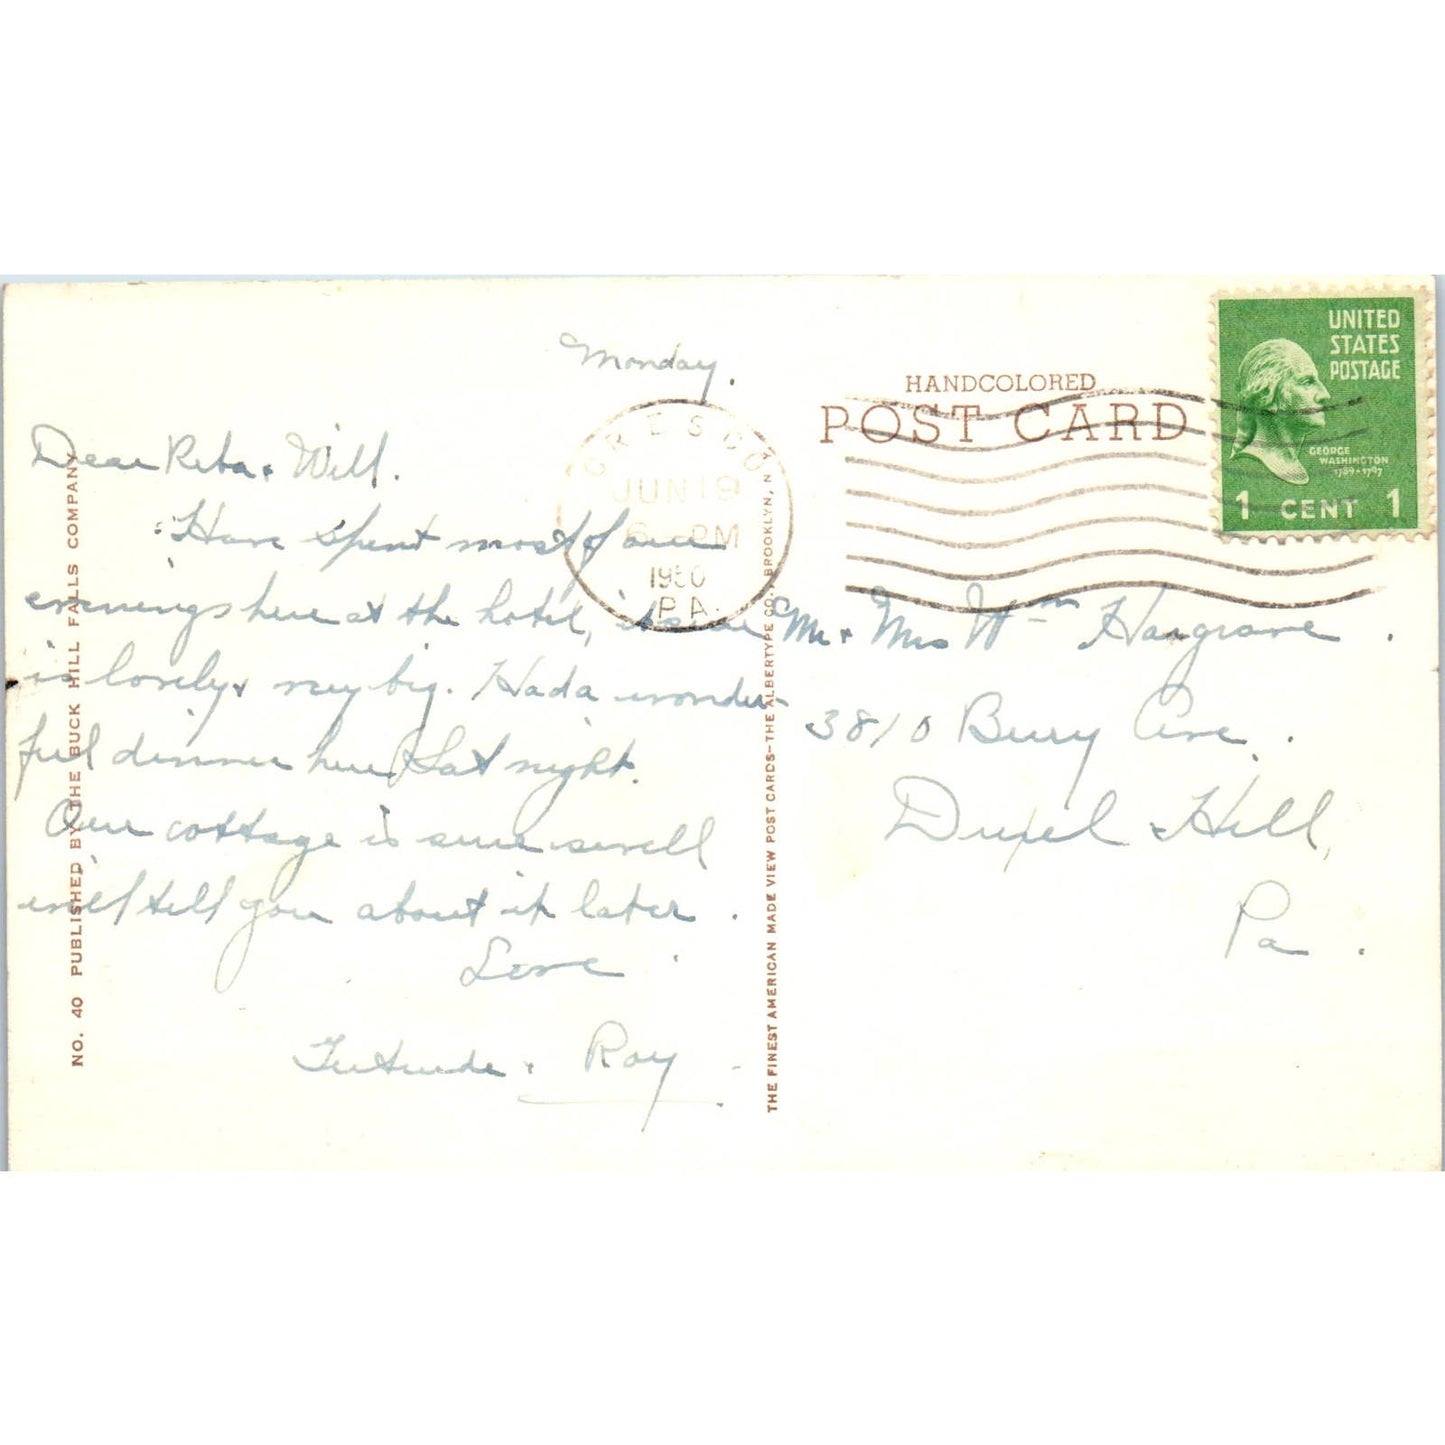 Monday.
Dear Reba & Will.
Have spent most of our
evenings here at the hotel, it sure
is lovely & very big. Had a wonder-
ful dinner here Sat night.
Our cottage is sure swell
will tell you about it later.
Love
Gertrude & Roy
NO. 40 PUBLISHED BY THE BUCK HILL FALLS COMPANY
CRESCO
JUN 19
PM
1950
PA.
THE FINEST AMERICAN MADE VIEW POST CARDS—THE ALBERTYPE CO., BROOKLYN, N.Y.
HANDCOLORED
POST CARD
UNITED
STATES
POSTAGE
GEORGE
WASHINGTON
1789-1797
1 CENT 1
Mr & Mrs Wm Hargrave.
3810 Berry Ave.
Drexel Hill,
Pa.